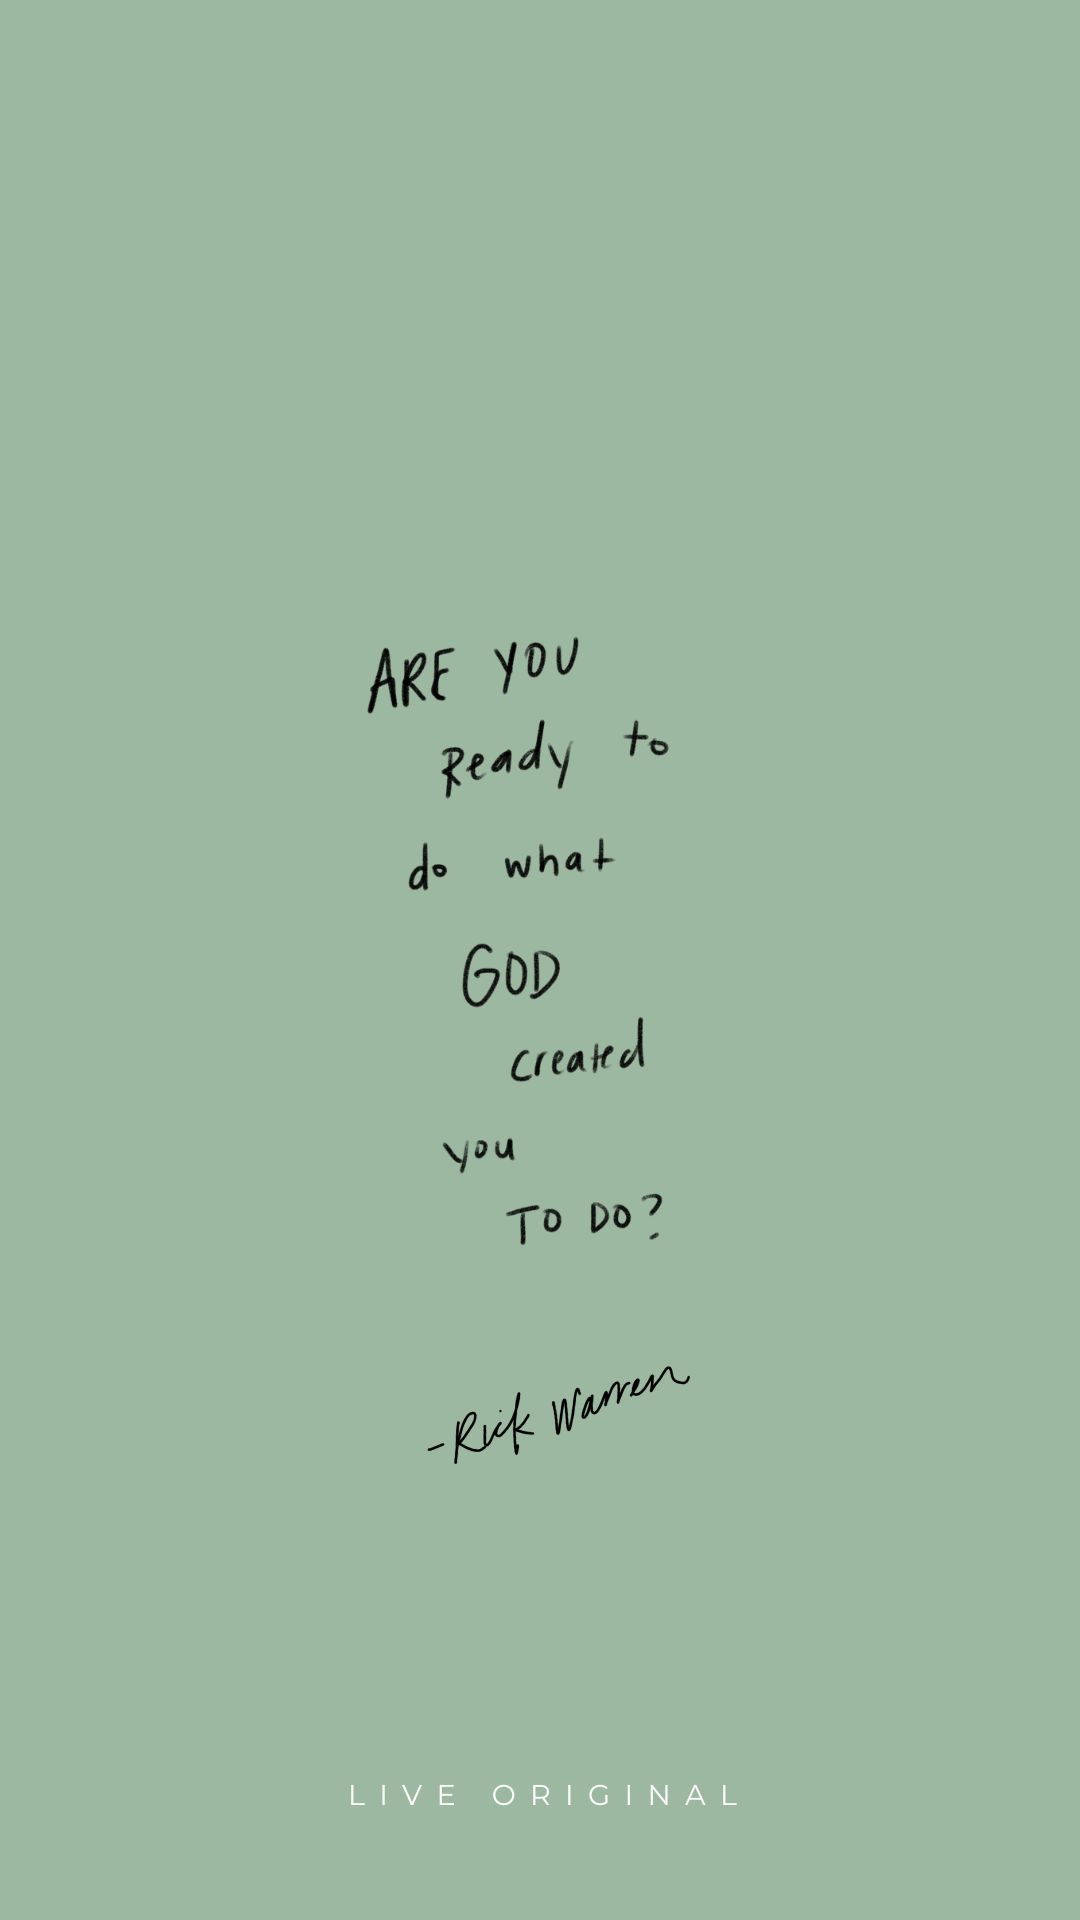 ARE YOU
Ready to
do what
GOD
created
you
TO DO?
-Rick Warren
LIVE ORIGINAL